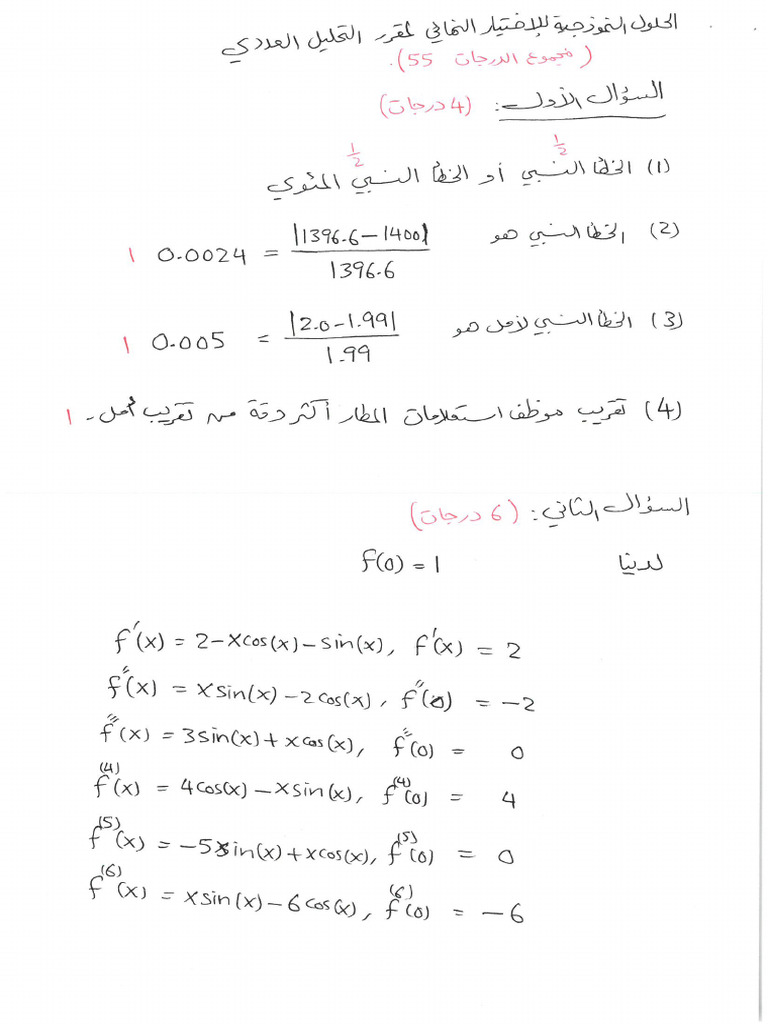 الحلول النموذجية للإختبار النهائي لمقرر التحليل العددي
(مجموع الدرجات 55).
السؤال الأول: (4 درجات)
1/2 1/2
(1) الخطأ النسبي أو الخطأ النسبي المئوي
(2) الخطأ النسبي هو |1396.6-1400| / 1396.6 = 0.0024 1
(3) الخطأ النسبي لأمل هو |2.0-1.99| / 1.99 = 0.005 1
(4) تقريب موظف استعلامات المطار أكثر دقة من تقريب أمل. 1
السؤال الثاني: (6 درجات)
لدينا f(0) = 1
f'(x) = 2-xcos(x)-sin(x), f'(x) = 2
f''(x) = xsin(x)-2cos(x), f''(0) = -2
f'''(x) = 3sin(x)+xcos(x), f'''(0) = 0
f⁽⁴⁾(x) = 4cos(x)-xsin(x), f⁽⁴⁾(0) = 4
f⁽⁵⁾(x) = -5sin(x)+xcos(x), f⁽⁵⁾(0) = 0
f⁽⁶⁾(x) = xsin(x)-6cos(x), f⁽⁶⁾(0) = -6